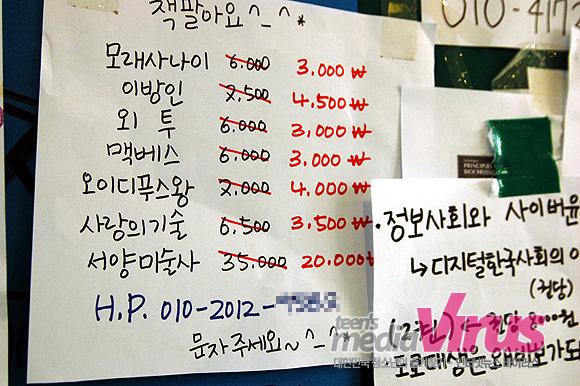 책팔아요^_^*
모래사나이 6.000 3.000₩
이방인 7.500 4.500₩
외 투 6.000 3,000₩
맥베스 6.000 3.000₩
오이디푸스왕 7.000 4.000₩
사랑의기술 6.500 3.500₩
서양미술사 35.000 20.000₩
H.P. 010-2012-
문자주세요~^_^*
010-417
PRINCIPLES
BIOCHEMIS
·정보사회와 사이버윤
↳디지털한국사회의 이
(권당)
(2권) ← 권당
teen's
mediaVirus